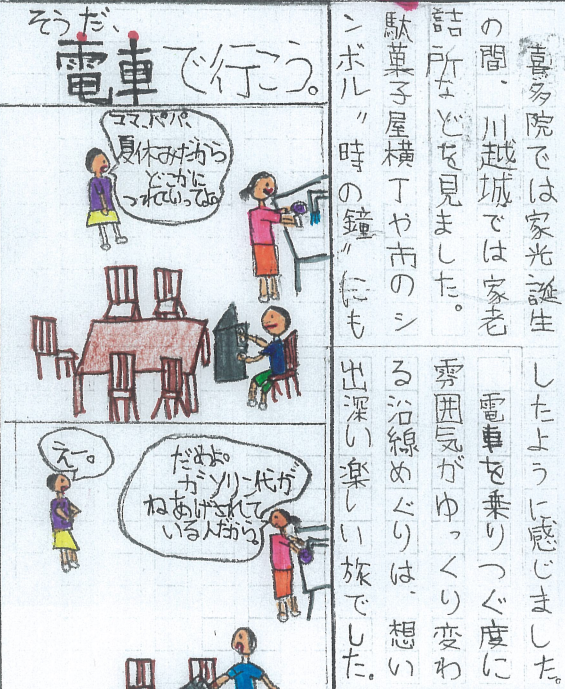 そうだ、
電車で行こう。
ママ、パパ、
夏休みだから
どこかに
つれていってよ。
えー。
だめよ。
ガソリン代が
ねあげされて
いる人だから。
喜多院では家光誕生
の間、川越城では家老
詰所などを見ました。
駄菓子屋横丁や市のシ
ンボル〝時の鐘〟にも
したように感じました。
電車を乗りつぐ度に
雰囲気がゆっくり変わ
る沿線めぐりは、想い
出深い楽しい旅でした。